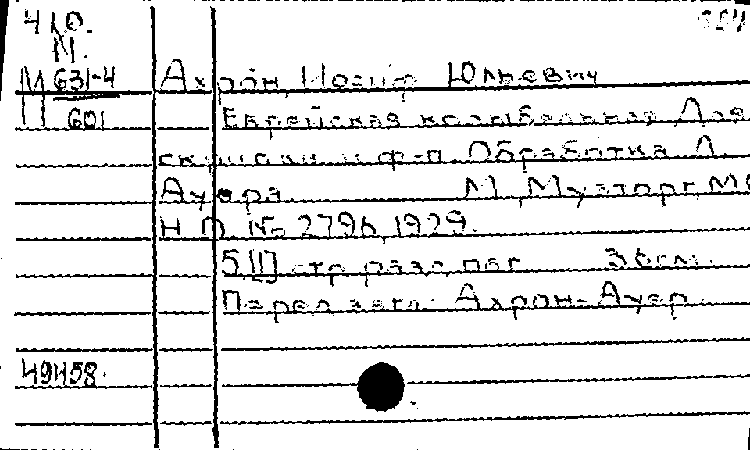 410.
М.
М 631-4
601
Ахрон, Иосиф Юльевич
Еврейская колыбельная Для
скрипки и ф-п. Обработка Л.
Ауэра М., Музторг, МО
Н. П. № 279б, 1929.
5[1] стр. разд. паг. 36см.
Перед загл.: Ахрон-Ауер
49458.